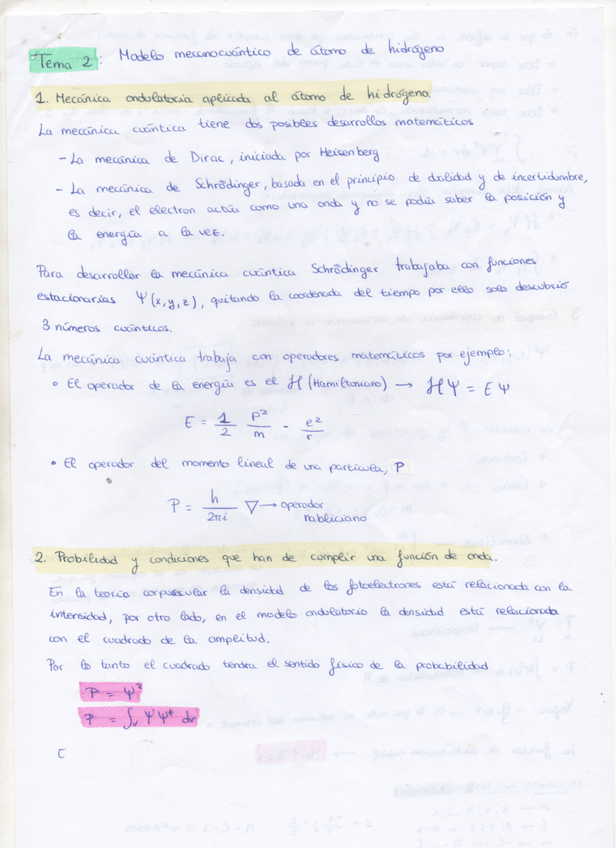 Tema 2: Modelo mecanocuántico de átomo de hidrógeno
1. Mecánica ondulatoria aplicada al átomo de hidrógeno.
La mecánica cuántica tiene dos posibles desarrollos matemáticos
- La mecánica de Dirac, iniciada por Heisenberg
- La mecánica de Schrödinger, basada en el principio de dualidad y de incertidumbre,
es decir, el electron actúa como una onda y no se podía saber la posición y
la energía a la vez.
Para desarrollar la mecánica cuántica Schrödinger trabajaba con funciones
estacionarias Ψ(x,y,z), quitando la coordenada del tiempo por ello solo descubrió
3 números cuánticos.
La mecánica cuántica trabaja con operadores matemáticos por ejemplo:
• El operador de la energía es el ℋ (Hamiltoniano) → ℋΨ = EΨ
E = 1/2 P²/m - e²/r
• El operador del momento lineal de una partícula, P
P = h/2πi ∇ → operador
nabliciano
2. Probilidad y condiciones que han de cumplir una función de onda.
En la teoría corpuscular la densidad de los fotoelectrones está relacionada con la
intensidad, por otro lado, en el modelo ondulatorio la densidad está relacionada
con el cuadrado de la amplitud.
Por lo tanto el cuadrado tendra el sentido físico de la probabilidad
P = Ψ²
P = ∫v ΨΨ* dv